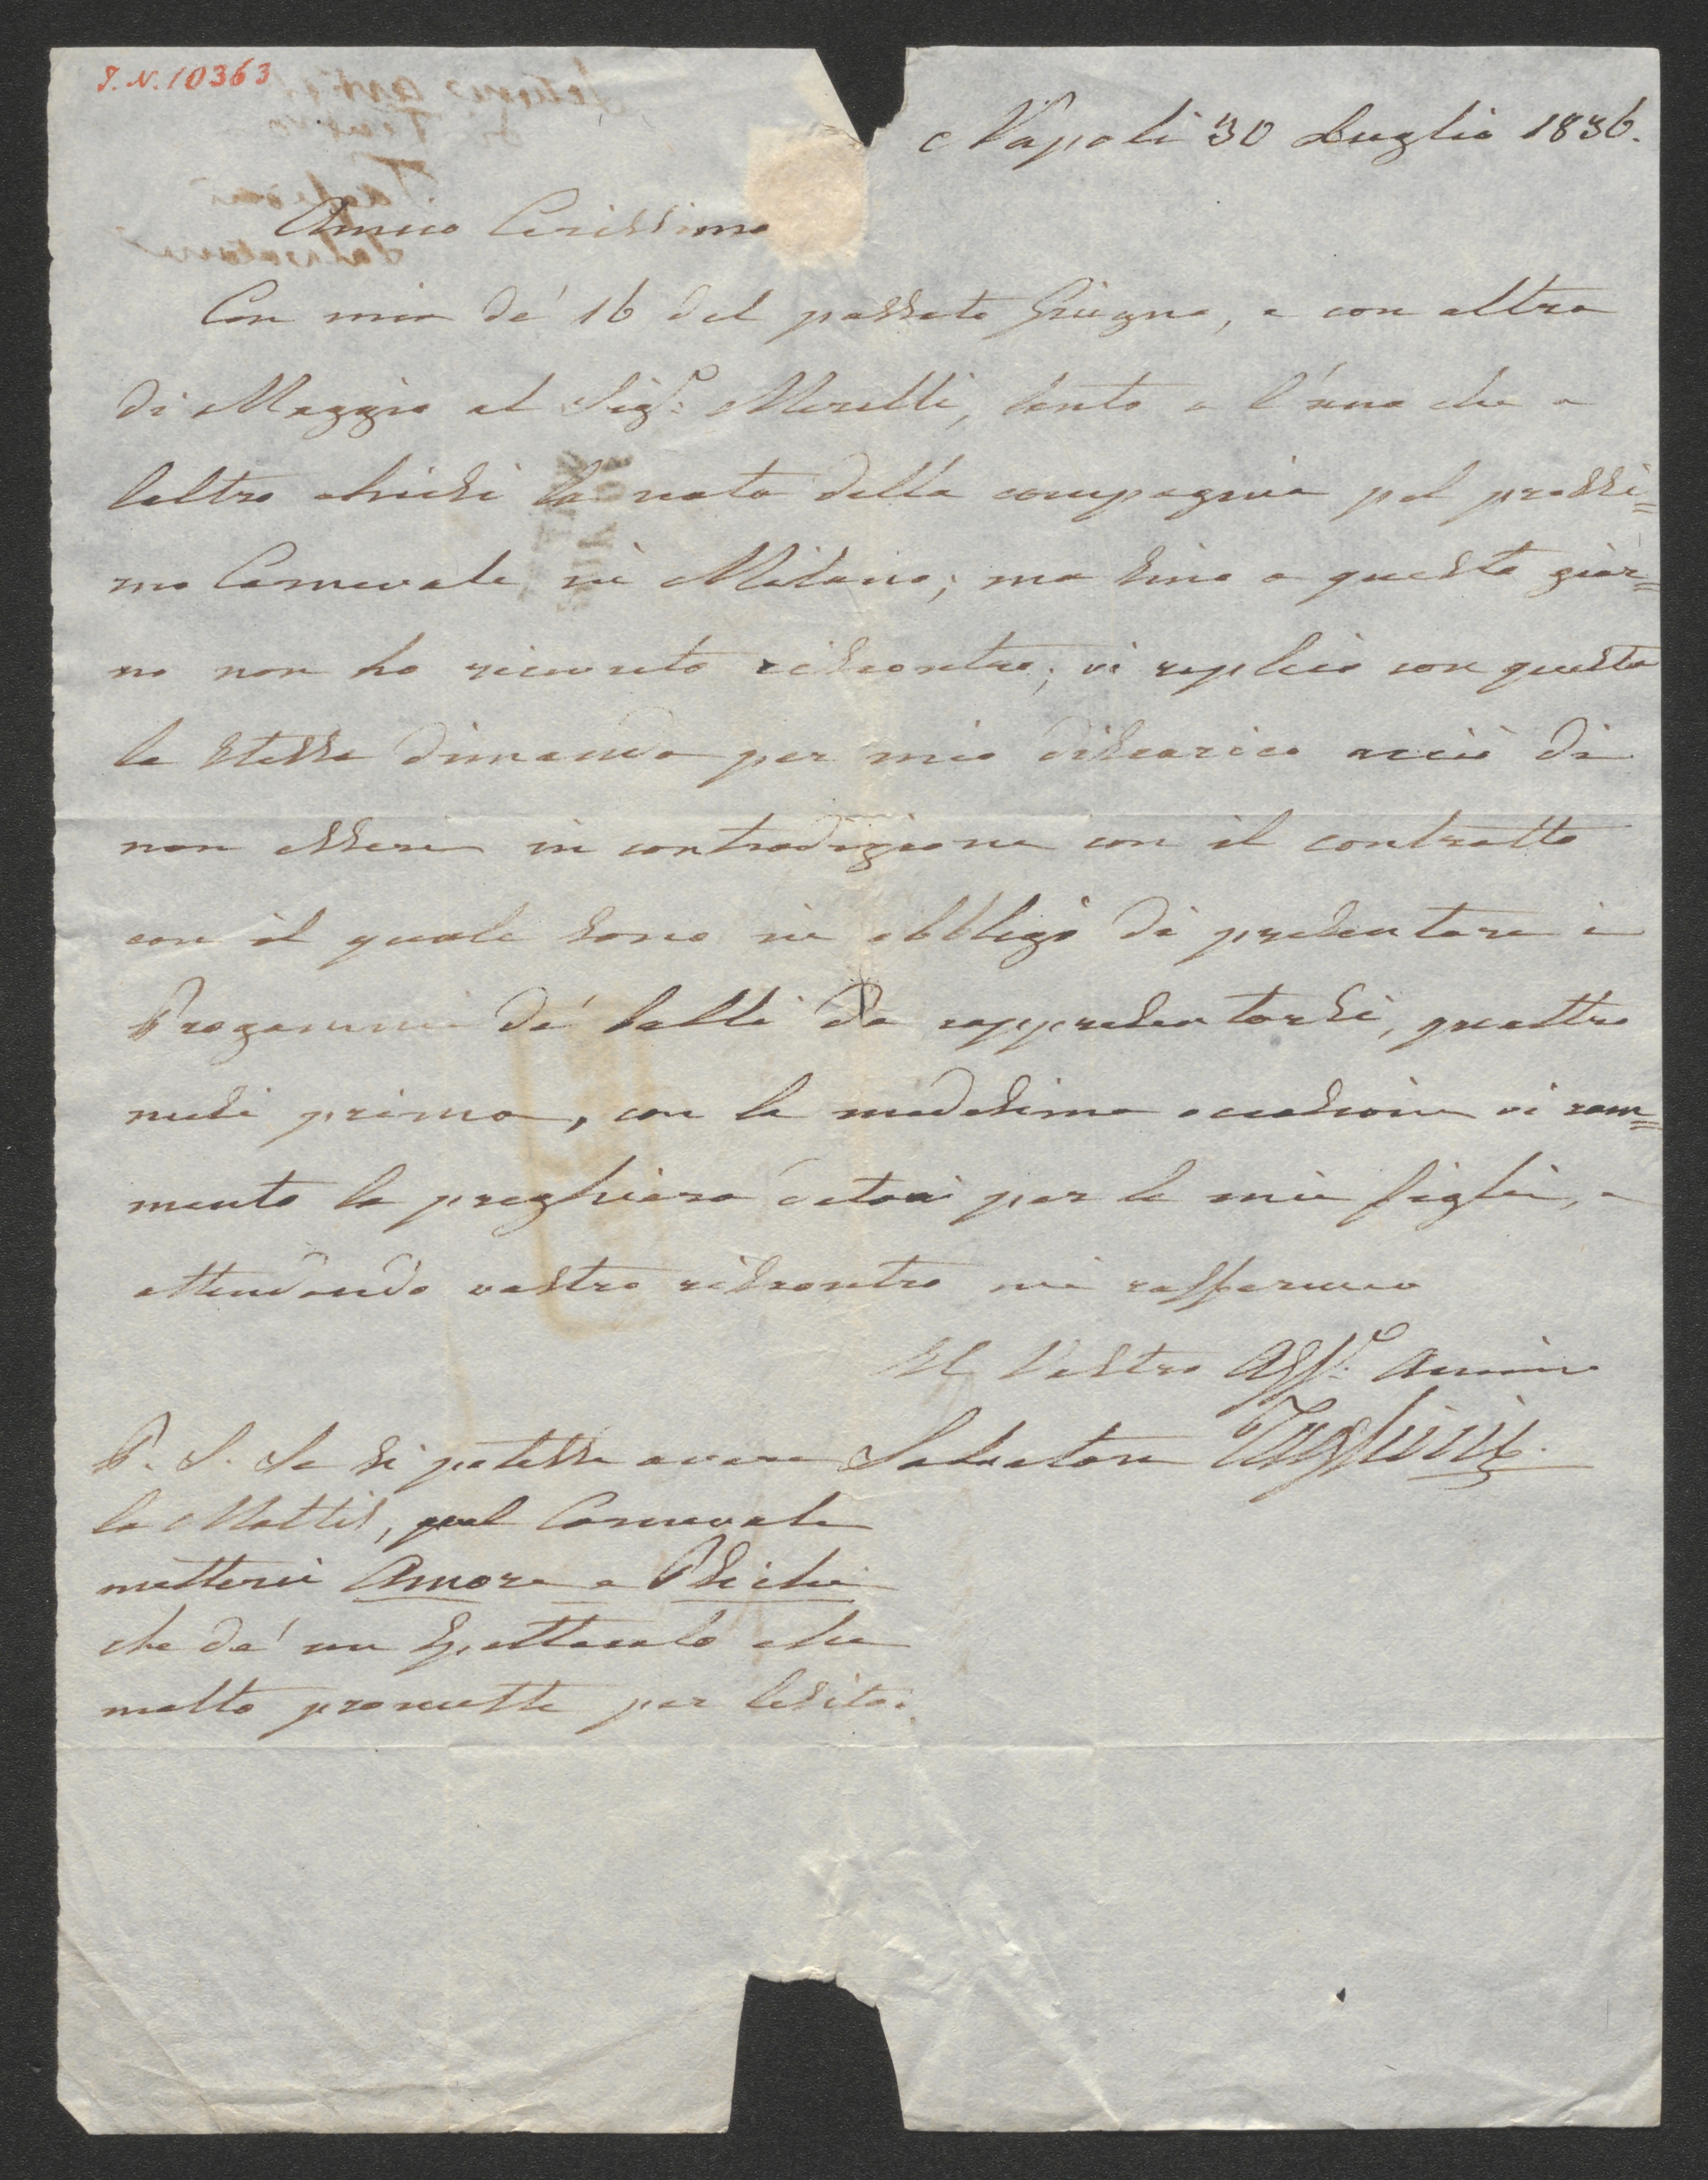 I. N. 10363
Napoli 30 Luglio 1836.
Amico Carissimo
Con mia de' 16 del passato Giugno, e con altra
di Maggio al Sig.r Merelli, tanto a l'uno che a
l'altro chiesi la nota della compagnia pel prossi=
mo Carnevale in Milano; ma sino a questo gior=
no non ho ricevuto riscontro; vi replico con questa
la stessa dimanda per mio discarico acciò di
non essere in contradizione con il contratto
con il quale sono in obbligo di presentare i
Programmi de' balli da rappresentarsi, quattro
mesi prima, con la medesima occasione vi ram=
mento la preghiera per le mie figlie, e
attendendo vostro riscontro mi raffermo
Il Vostro Aff.o Amico
Salvatore Taglioni
P. S. Se si potesse avere
la pel Carnevale
metterei Amore e Psiche
che da' un spettacolo che
molto promette per lesito.